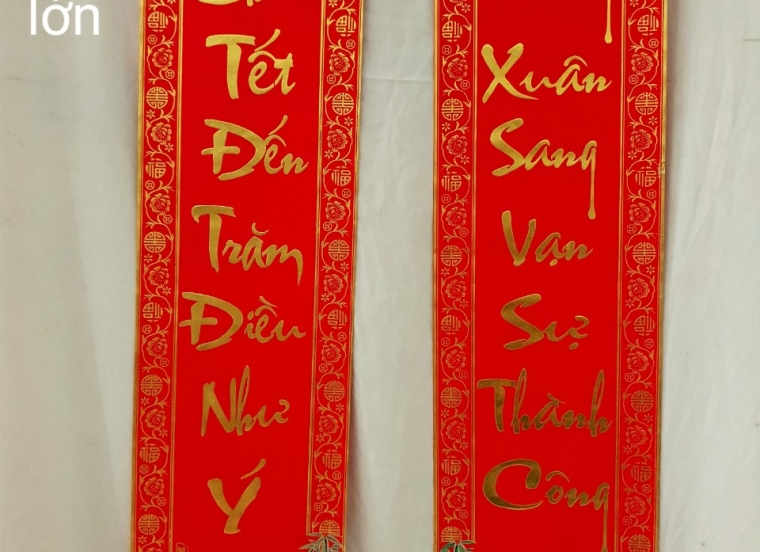 lớn
Tết
Đến
Trăm
Điều
Như
Ý
Xuân
Sang
Vạn
Sự
Thành
Công